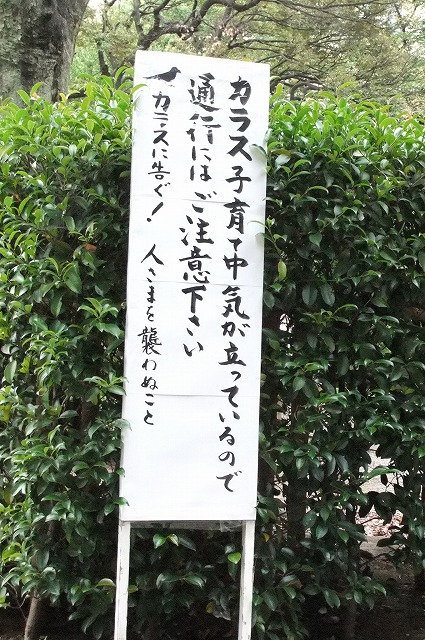 カラス子育て中気が立っているので
通行にはご注意下さい
カラスに告ぐ！ 人さまを襲わぬこと